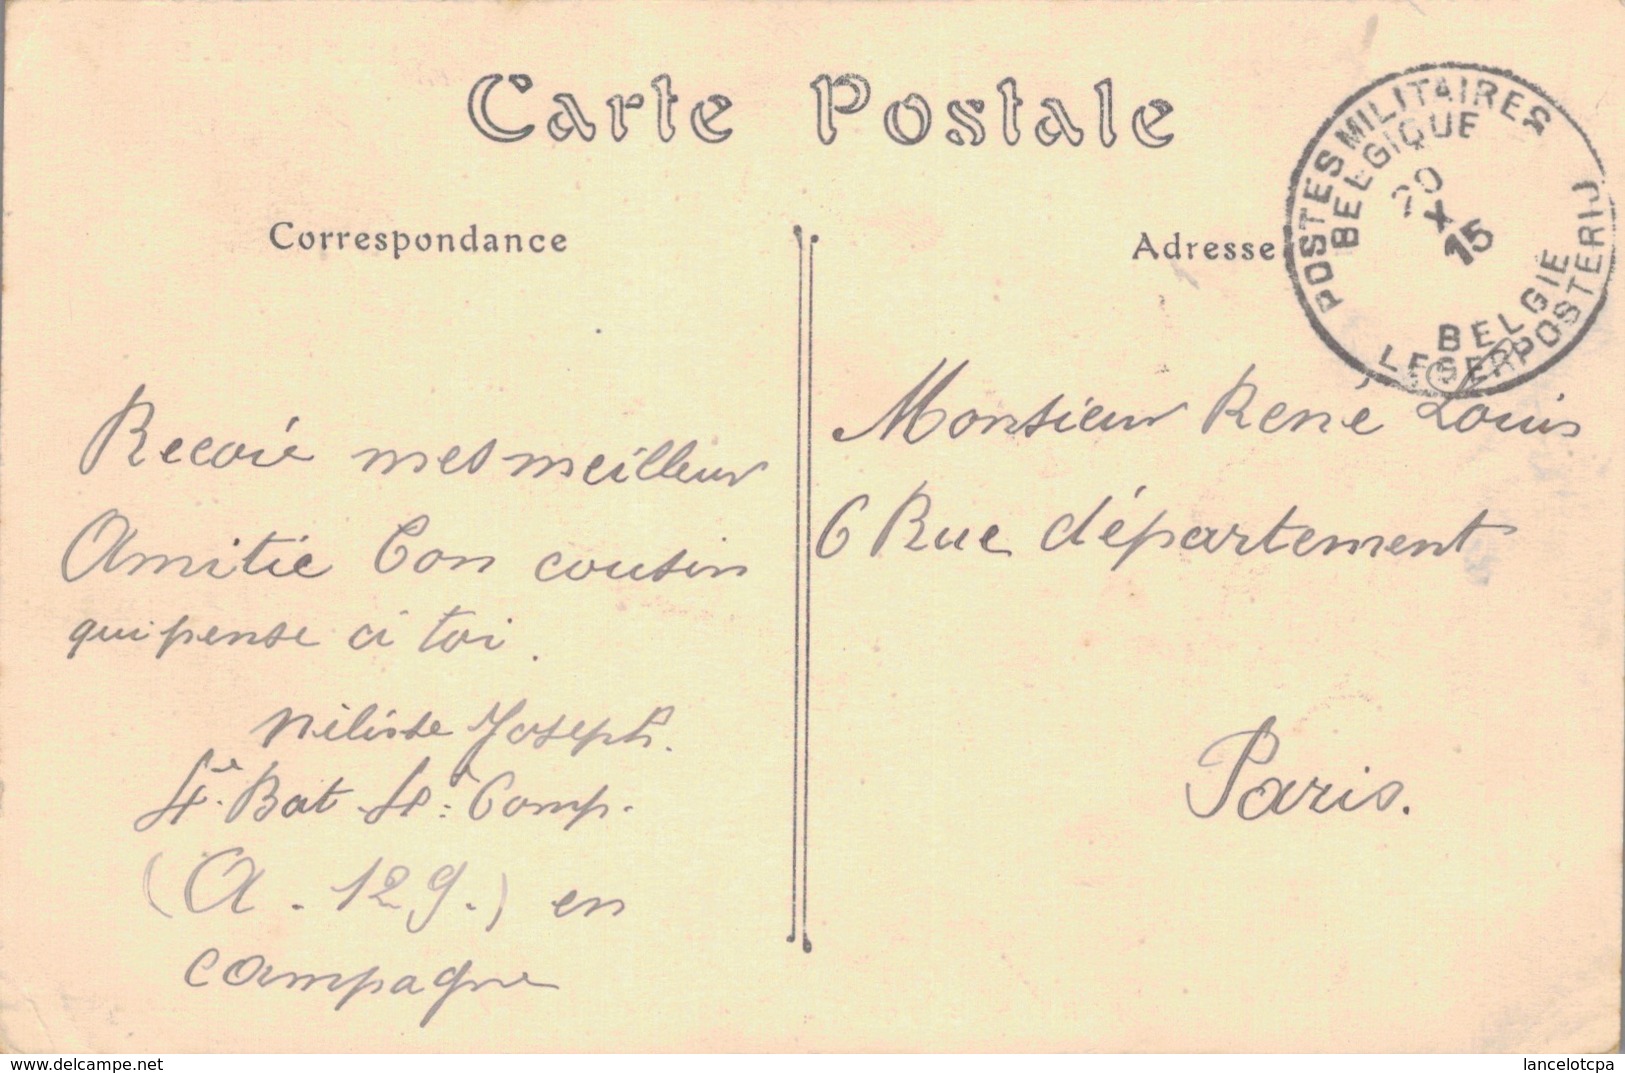 Carte Postale
Correspondance
Adresse
POSTES MILITAIRES
BELGIQUE
20
X
15
BELGIE
LEGERPOSTERIJ
Recoié mes meilleur
Amitié Ton cousin
qui pense a toi.
Joseph.
4è. Bat 4è: Comp.
(A. 129.) en
campagne
Monsieur René Louis
6 Rue département
Paris.
www.delcampe.net
lancelotcpa